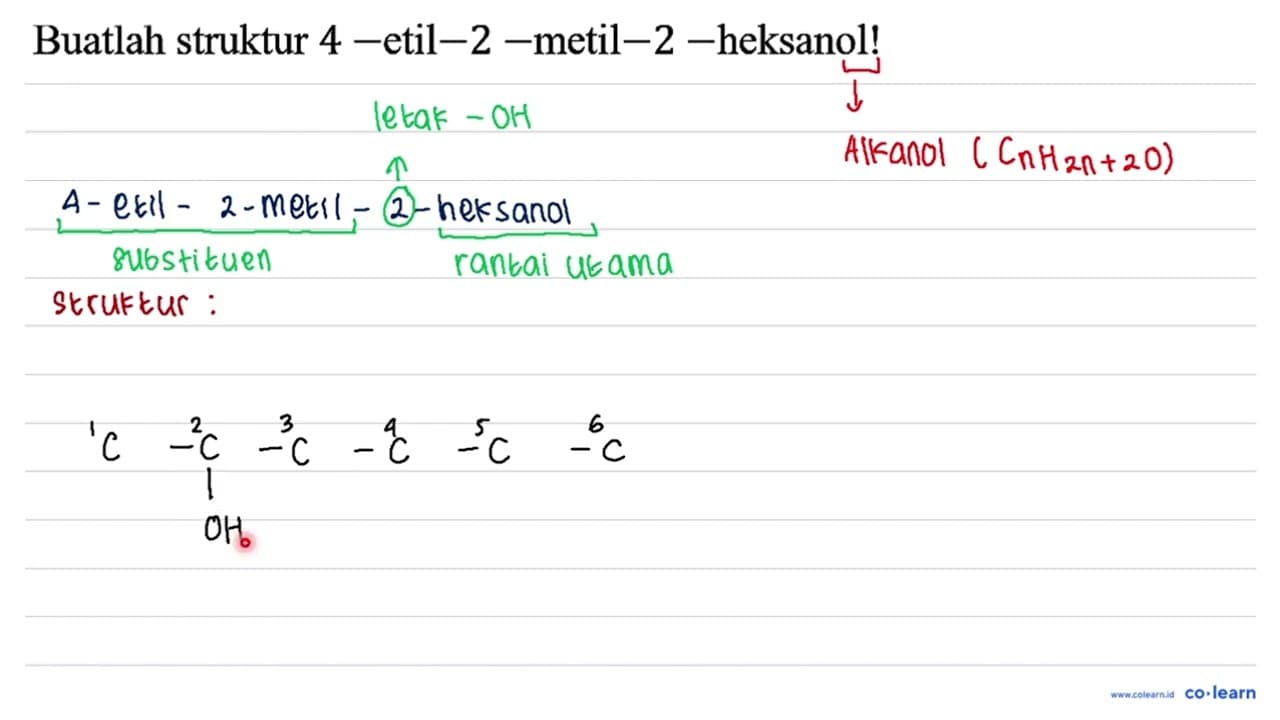 Buatlah struktur 4 −etil−2 −metil−2 −heksanol!
letak - OH
Alkanol (CnH2n+2O)
4 - etil - 2 - metil - 2 - heksanol
substituen
rantai utama
struktur :
1 2 3 4 5 6
C - C - C - C - C - C
OH
www.colearn.id co·learn